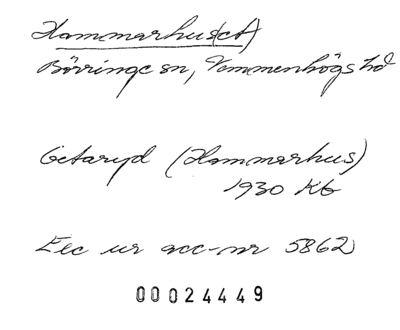 Hammarhus(et)
Börringe sn, Vemmenhögs hd
Getaryd (Hammarhus)
1930 Kb
Exc ur acc-nr 5862
00024449